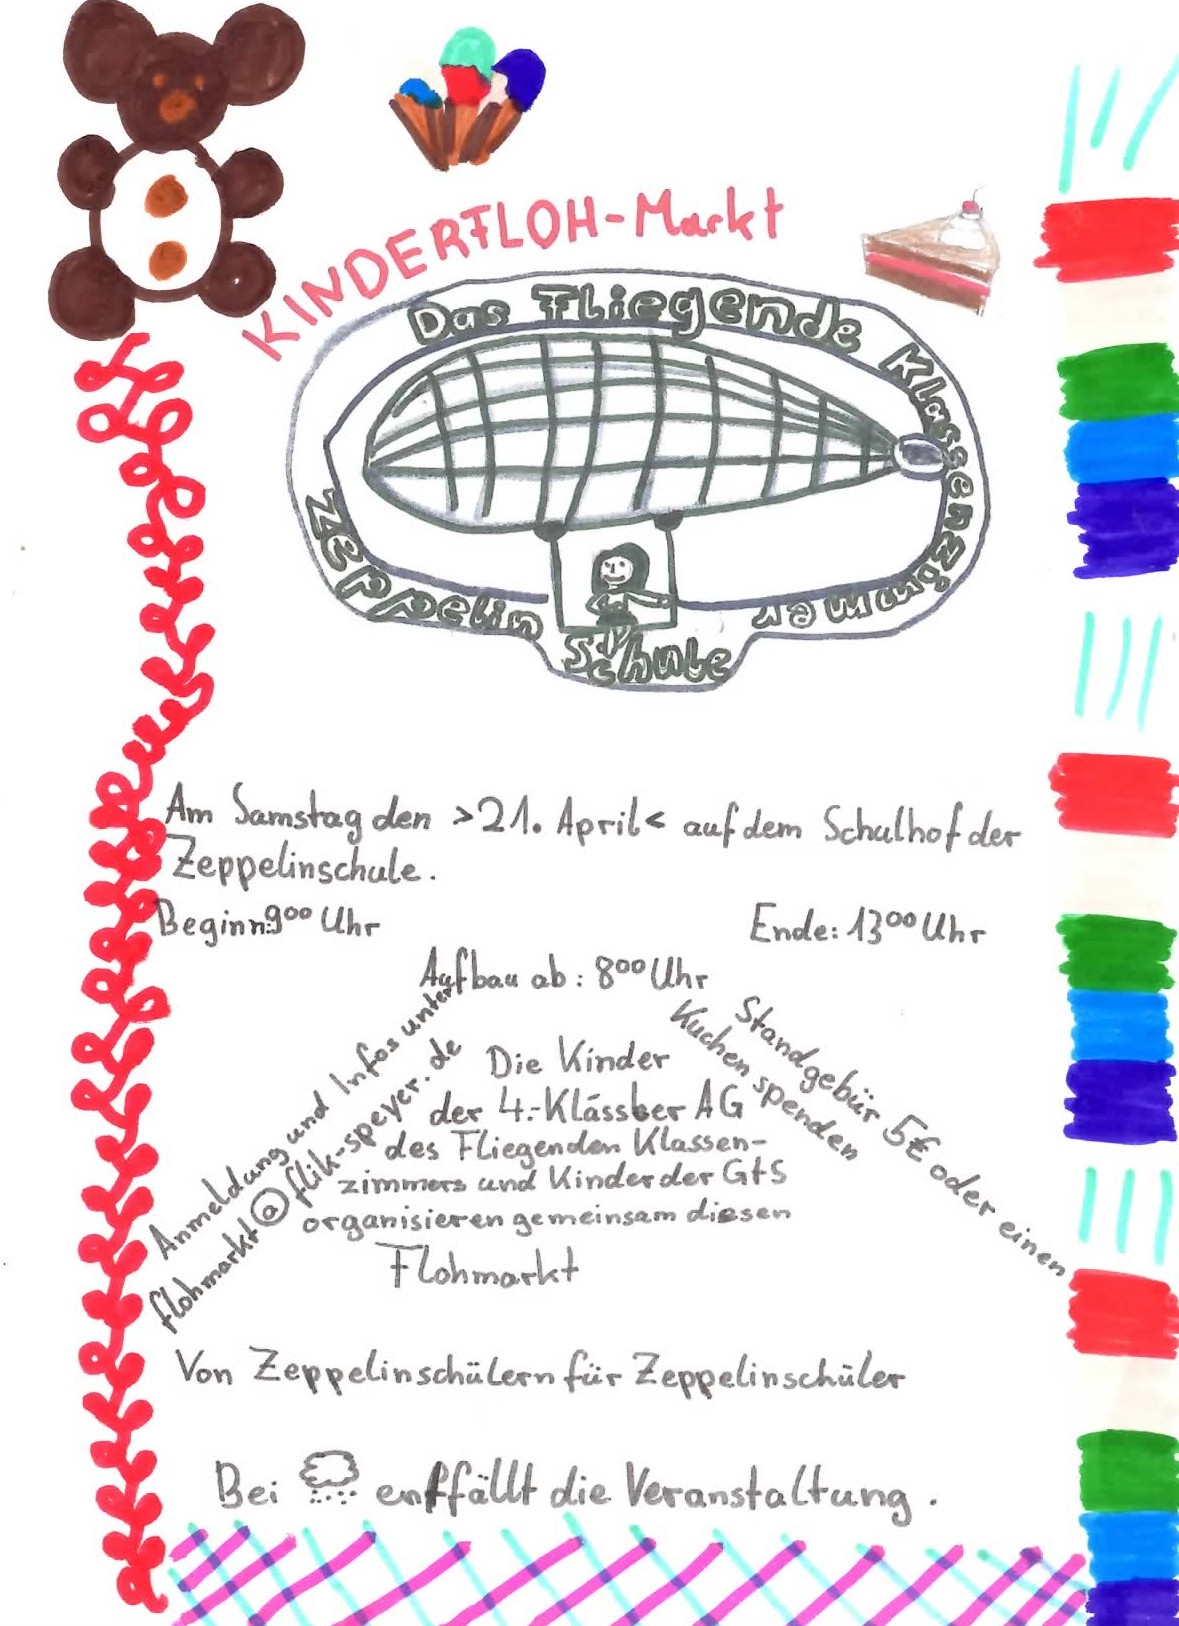 KINDERFLOH-Markt
Das Fliegende Klassenzimmer
Zeppelin
Schule
Am Samstag den >21. April< auf dem Schulhof der
Zeppelinschule.
Beginn:9⁰⁰ Uhr
Ende: 13⁰⁰ Uhr
Aufbau ab: 8⁰⁰ Uhr
Anmeldung und Infos unter
flohmarkt@flik-speyer.de
Standgebür 5€ oder einen
Kuchen spenden
Die Kinder
der 4.-Klässber AG
des Fliegenden Klassen-
zimmers und Kinder der GtS
organisieren gemeinsam diesen
Flohmarkt
Von Zeppelinschülern für Zeppelinschüler
Bei entfällt die Veranstaltung.